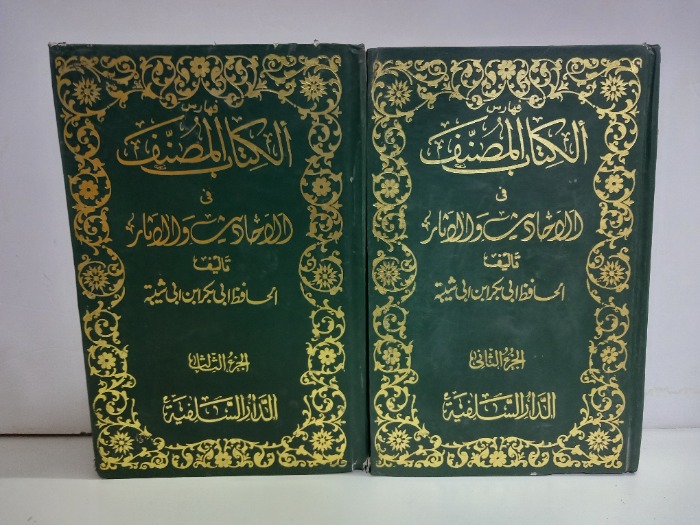 فهارس
الكتاب المصنف
فى
الاحاديث والاثار
تاليف
الحافظ ابى بكر ابن ابى شيبة
الجزء الثالث
الدار السلفية
فهارس
الكتاب المصنف
فى
الاحاديث والاثار
تاليف
الحافظ ابى بكر ابن ابى شيبة
الجزء الثانى
الدار السلفية